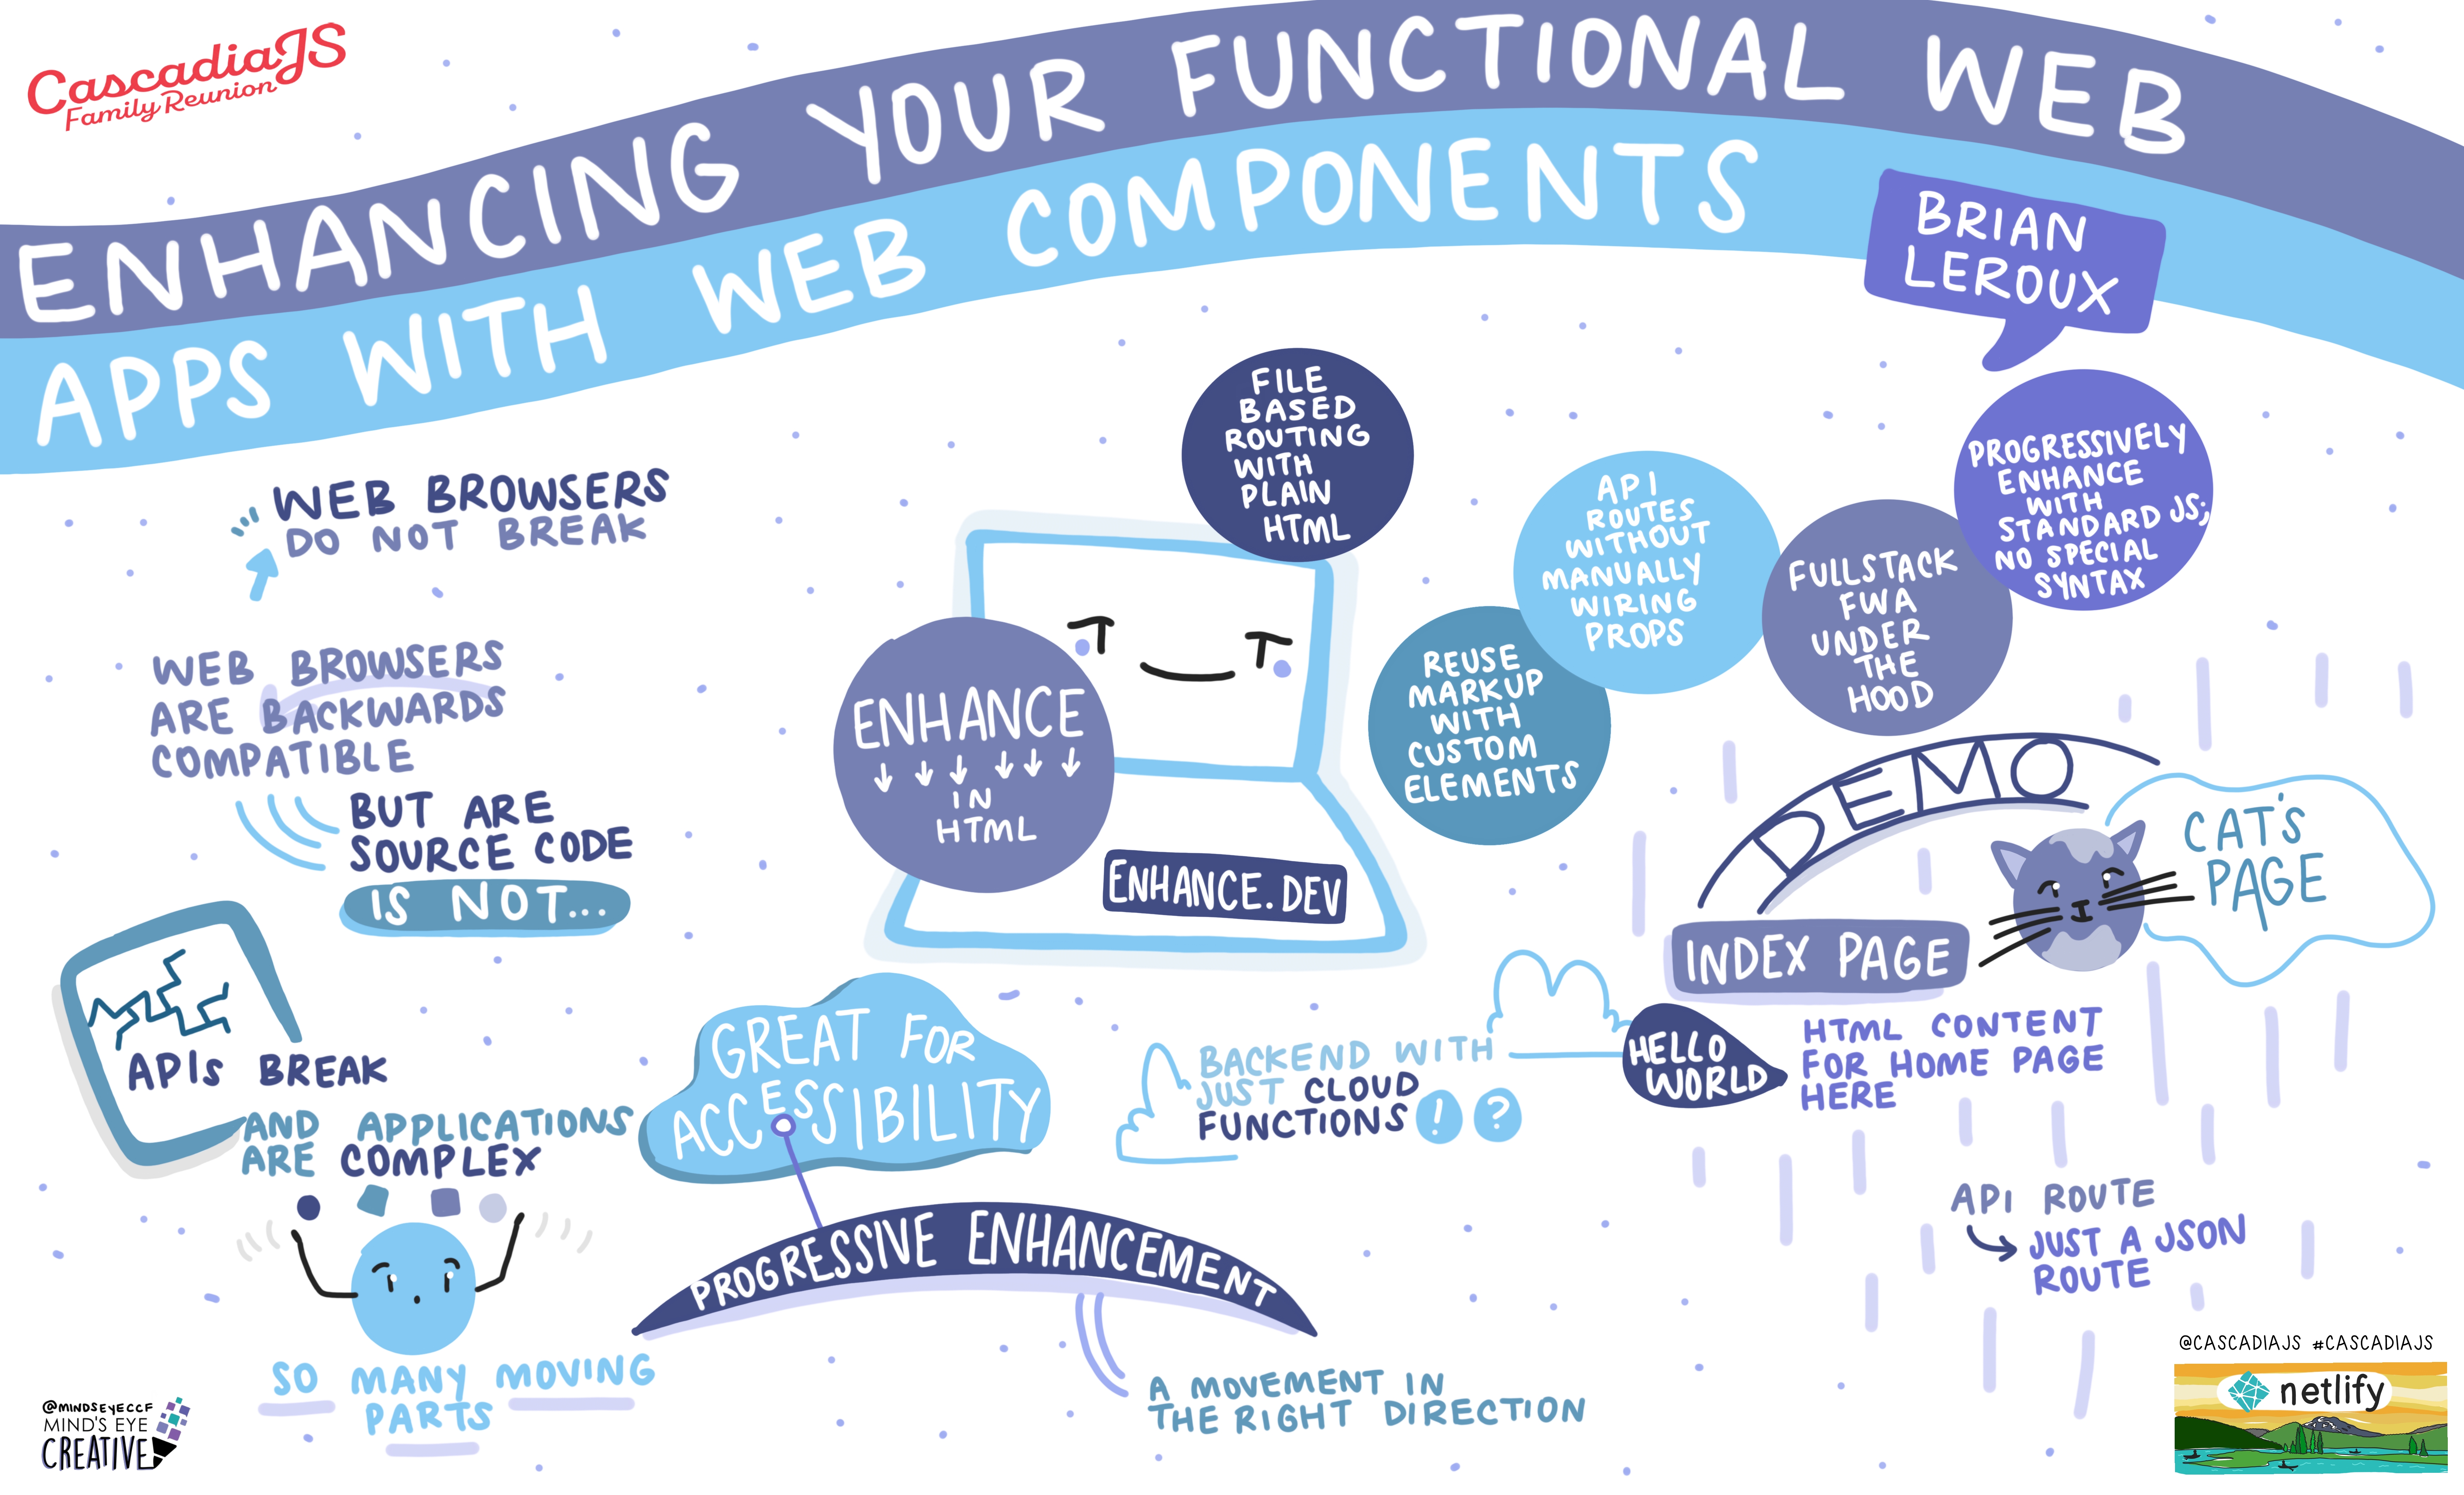 CascadiaJS
Family Reunion
ENHANCING YOUR FUNCTIONAL WEB
APPS WITH WEB COMPONENTS
BRIAN
LEROUX
WEB BROWSERS
DO NOT BREAK
WEB BROWSERS
ARE BACKWARDS
COMPATIBLE
BUT ARE
SOURCE CODE
IS NOT...
APIs BREAK
AND APPLICATIONS
ARE COMPLEX
SO MANY MOVING
PARTS
ENHANCE
IN
HTML
ENHANCE.DEV
FILE
BASED
ROUTING
WITH
PLAIN
HTML
REUSE
MARKUP
WITH
CUSTOM
ELEMENTS
API
ROUTES
WITHOUT
MANUALLY
WIRING
PROPS
FULLSTACK
FWA
UNDER
THE
HOOD
PROGRESSIVELY
ENHANCE
WITH
STANDARD JS;
NO SPECIAL
SYNTAX
GREAT FOR
ACCESSIBILITY
PROGRESSIVE ENHANCEMENT
A MOVEMENT IN
THE RIGHT DIRECTION
BACKEND WITH
JUST CLOUD
FUNCTIONS ! ?
DEMO
INDEX PAGE
CAT'S
PAGE
HELLO
WORLD
HTML CONTENT
FOR HOME PAGE
HERE
API ROUTE
JUST A JSON
ROUTE
@MINDSEYECCF
MIND'S EYE
CREATIVE
@CASCADIAJS #CASCADIAJS
netlify